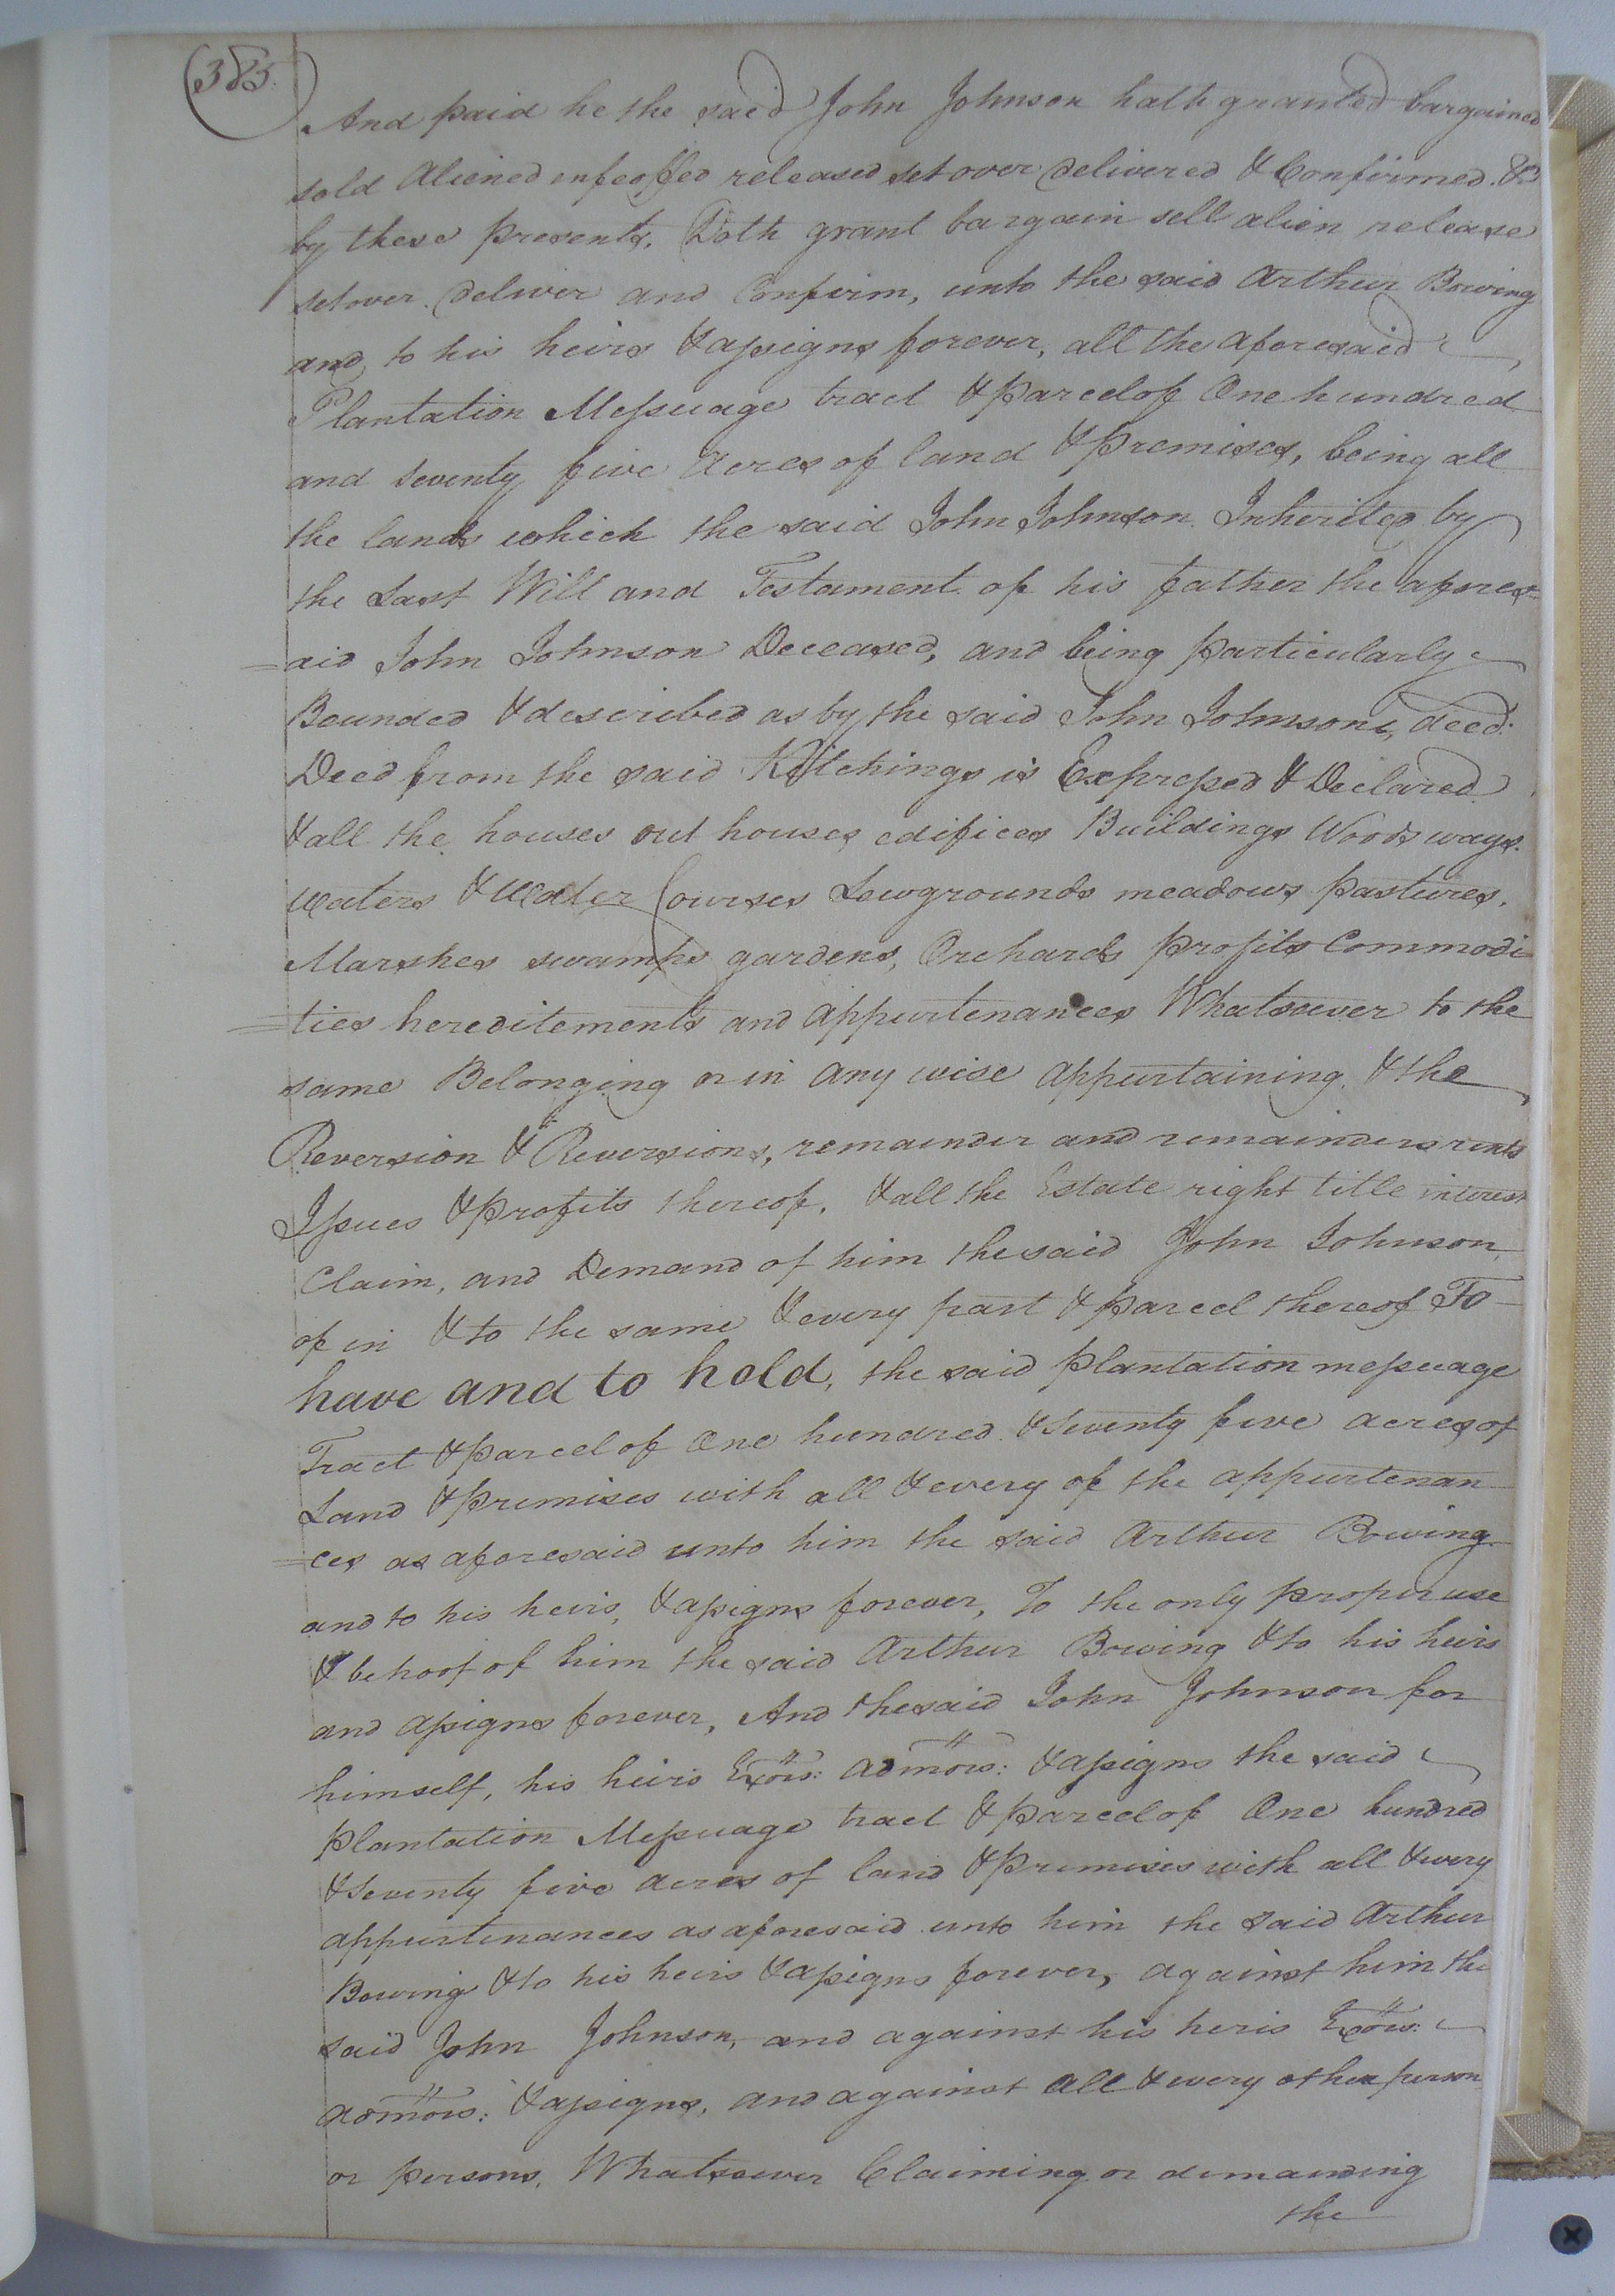 (385.)
And paid he the said John Johnson hath granted bargained
sold aliened enfeoffed released set over delivered & Confirmed. &
by these presents, Doth grant bargain sell alien release
setover. deliver and Confirm, unto the said Arthur Bowing
and to his heirs & assigns forever, all the aforesaid
Plantation Messuage tract & parcel of One hundred
and seventy five Acres of land & premises, being all
the lands which the said John Johnson. Inherited by
the Last Will and Testament of his father the afores=
=aid John Johnson Deceased, and being particularly
Bounded & described as by the said John Johnsons, deed.
Deed from the said Kitchings is Expressed & Declared
& all the houses out houses edifices Buildings Woods ways.
waters & Water Courses Lowgrounds meadows pastures,
Marshes swamps gardens, Orchards profits Commodi=
=ties hereditements and appurtenances Whatsoever to the
same Belonging or in any wise appurtaining & the
Reversion & Reversions, remainder and remainders rents
Issues & profits thereof, & all the Estate right title interest
Claim, and Demand of him the said John Johnson
of in & to the same & every part & parcel thereof To
have and to hold, the said plantation messuage
Tract & parcel of One hundred & seventy five acres of
Land & premises with all & every of the appurtenan
=ces as aforesaid unto him the said Arthur Bowing
and to his heirs, & assigns forever, To the only proper use
& behoof of him the said Arthur Bowing & to his heirs
and assigns forever, And the said John Johnson for
himself, his heirs Exors: admors: & assigns the said
plantation Messuage tract & parcel of One hundred
& seventy five acres of land & premises with all & every
appurtenances as aforesaid unto him the said Arthur
Bowing & to his heirs & assigns forever, against him the
said John Johnson, and against his heris Exors:
admors: & assigns, and against all & every other person
or persons, Whatsoever Claiming or demanding
the